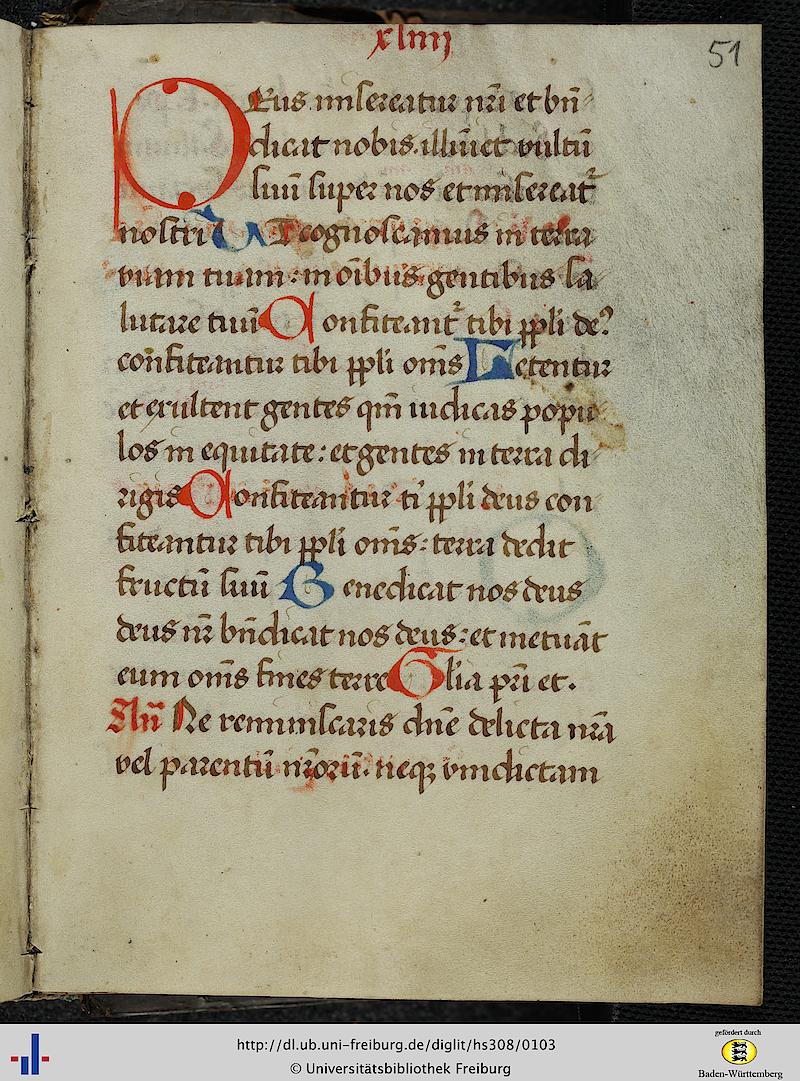 xliiij
51
DEus misereatur nr̄i et bn̄-
dicat nobis. illūīet vultū
suū super nos et misereat᷑
nostri Ut cognoscamus in terra
viam tuam: in oībus gentibus sa-
lutare tuū Confiteant᷑ tibi ppli de?
confiteantur tibi ppli oms̄ Letentur
et exultent gentes qm̄ iudicas popu-
los in equitate: et gentes in terra di-
rigis Confiteantur ti ppli deus con-
fiteantur tibi ppli oms̄: terra dedit
fructū suū Benedicat nos deus
deus nr̄ bn̄dicat nos deus: et metuāt
eum oms̄ fines terre Glia pr̄i et.
An̄ Ne reminiscaris dn̄e delicta nr̄a
vel parentū nr̄orū. neqꝫ vindictam
http://dl.ub.uni-freiburg.de/diglit/hs308/0103
© Universitätsbibliothek Freiburg
gefördert durch
Baden-Württemberg